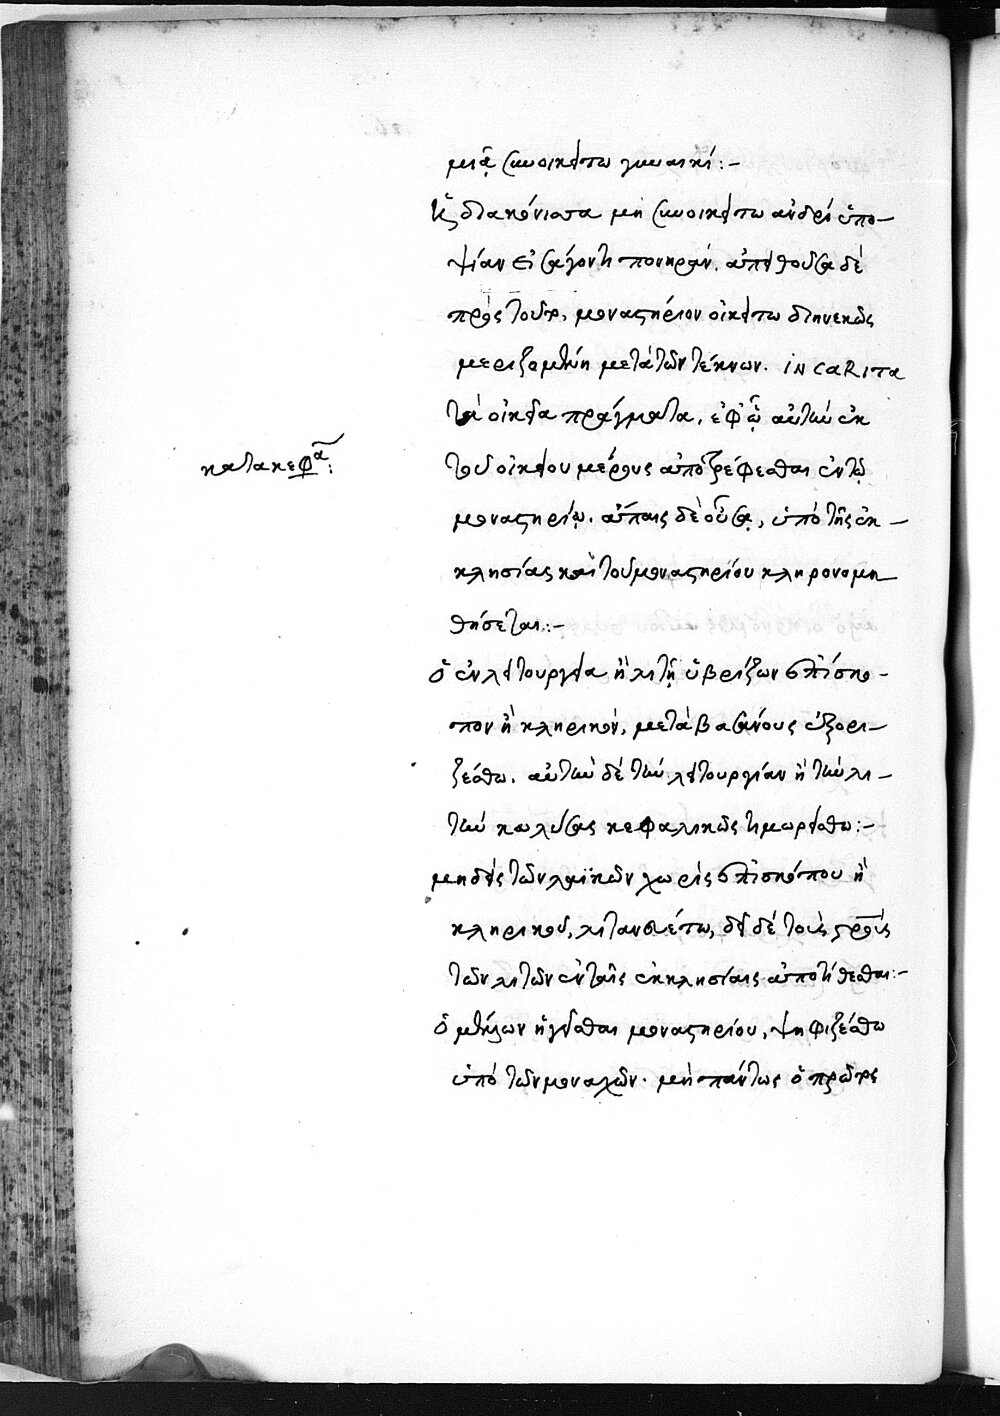 μιᾷ συνοικείτω γυναικί:–
Καὶ διακόνισσα μὴ συνοικείτω ἀνδρὶ ὑπο–
ψίαν εἰσάγοντι πονηράν. ἀπειθοῦσα δὲ
πρὸς τοῦτο, μοναστήριον οἰκείτω διηνεκῶς
μεριζομένη μετὰ τῶν τέκνων. IN CARITA
τὰ οἰκεῖα πράγματα, ἐφ' ᾧ αὐτὴν ἐκ
κατα κεφα:
τοῦ οἰκείου μέρους ἀποτρέφεσθαι ἐν τῷ
μοναστηρίῳ. ἄπαις δὲ οὖσα, ὑπὸ τῆς ἐκ–
κλησίας καὶ τοῦ μοναστηρίου κληρονομη–
θήσεται:–
ὁ ἐν λειτουργείᾳ ἢ λιτῇ ὑβρίζων ἐπίσκο–
πον ἢ κληρικὸν, μετὰ βασάνους ἐξορι–
ζέσθω. αὐτὴν δὲ τὴν λειτουργίαν ἢ τὴν λι–
τὴν κωλύσας κεφαλικῶς τιμωρείσθω:–
μηδεὶς τῶν λαϊκῶν χωρὶς ἐπισκόπου ἢ
κληρικοῦ, λιτανευέτω, δεῖ δὲ τοὺς σροὺς
τῶν λιτῶν ἐν ταῖς ἐκκλησίαις ἀποτίθεσθαι:–
ὁ μέλλων ἡγεῖσθαι μοναστηρίου, ψηφιζέσθω
ὑπὸ τῶν μοναχῶν. μὴ πάντως ὁ πρῶτος